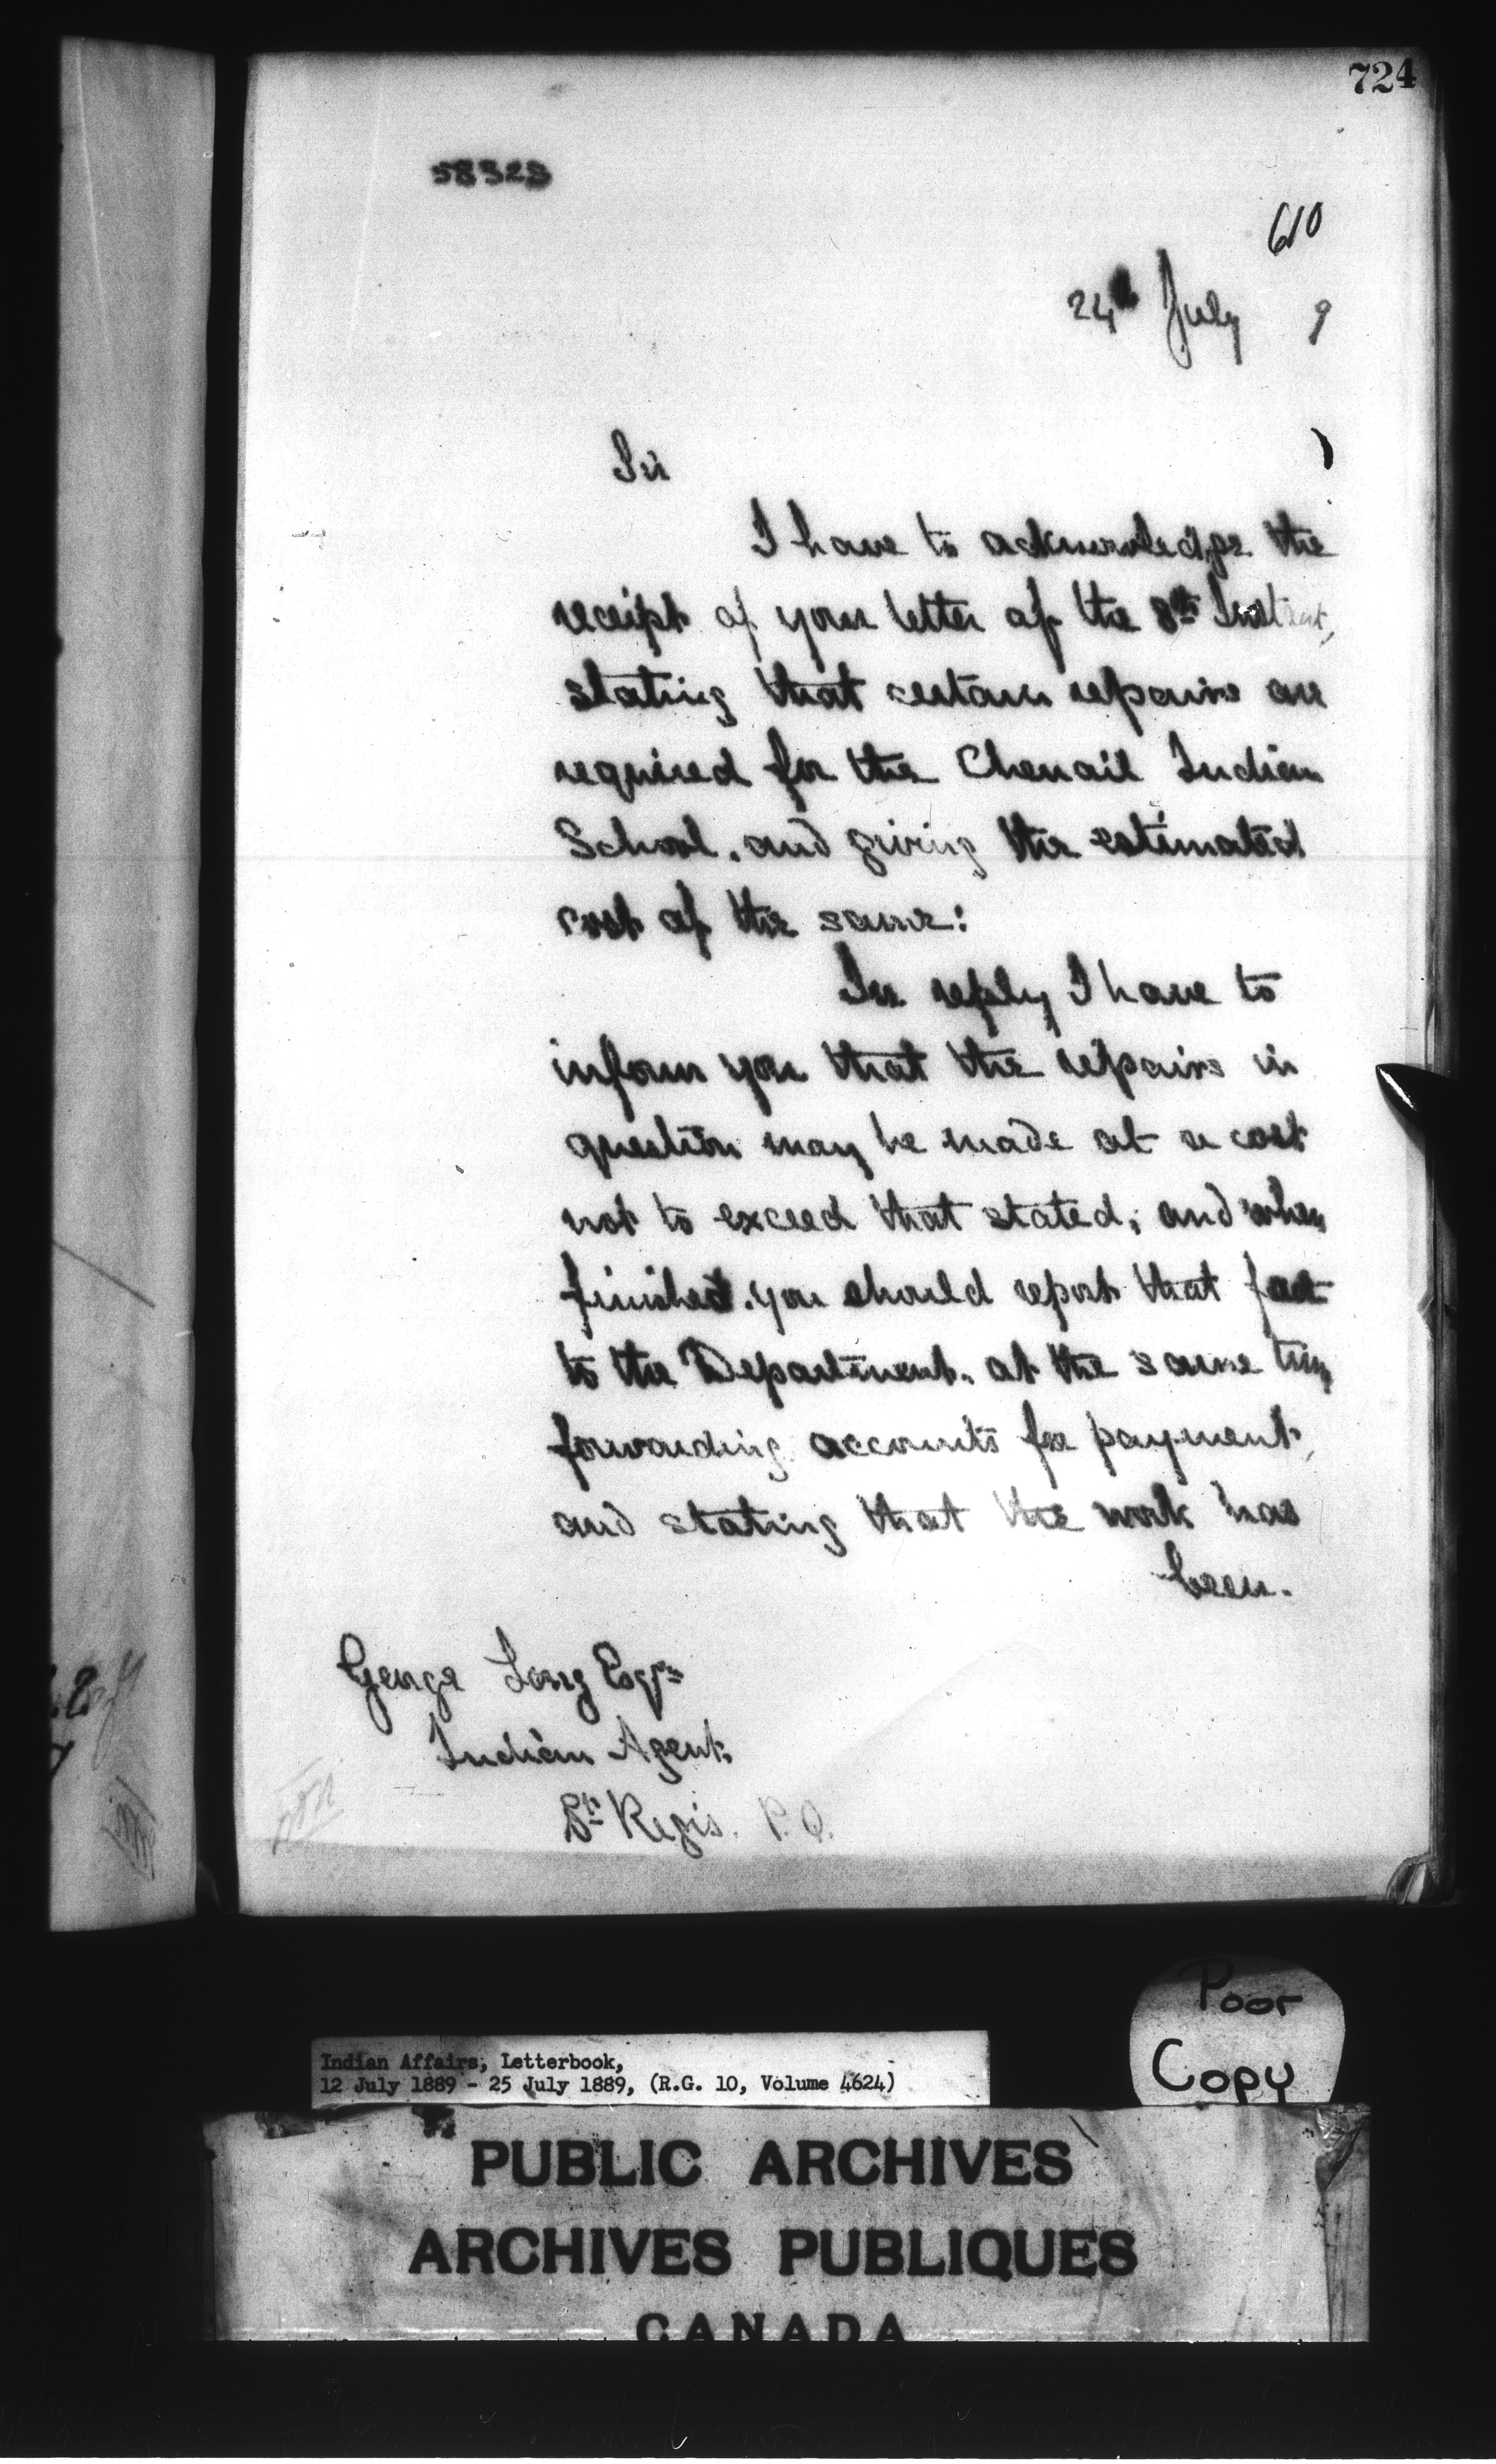 724
58323
610
24th July 9
Sir
I have to acknowledge the
receipt of your letter of the 8th Instant,
stating that certain repairs are
required for the Chenail Indian
School, and giving the estimated
cost of the same:
In reply I have to
inform you that the repairs in
question may be made at a cost
not to exceed that stated, and when
finished, you should report that fact
to the Department, at the same time
forwarding accounts for payment,
and stating that the work has
been.
George Long Esqre
Indian Agent,
St Regis. P.Q.
Poor
Copy
Indian Affairs, Letterbook,
12 July 1889 - 25 July 1889, (R.G. 10, Volume 4624)
PUBLIC ARCHIVES
ARCHIVES PUBLIQUES
CANADA